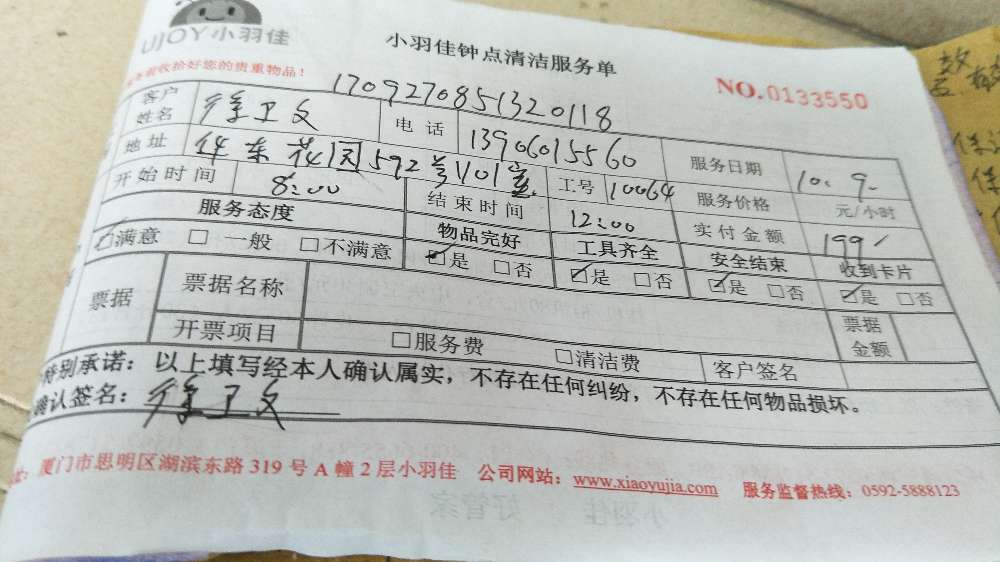 UJOY小羽佳
小羽佳钟点清洁服务单
收拾好您的贵重物品！
NO.0133550
170927085132​0118
客户姓名 徐卫文 电话 13906015560 服务日期 10.9.
地址 华东花园592号1101室 工号 10064 服务价格 元/小时
开始时间 8:00 结束时间 12:00 实付金额 199
服务态度 物品完好 工具齐全 安全结束 收到卡片
☑满意 □一般 □不满意 ☑是 □否 ☑是 □否 ☑是 □否 ☑是 □否
票据 票据名称 票据金额
开票项目 □服务费 □清洁费 客户签名
特别承诺：以上填写经本人确认属实，不存在任何纠纷，不存在任何物品损坏。
确认签名：徐卫文
厦门市思明区湖滨东路319号A幢2层小羽佳 公司网站：www.xiaoyujia.com 服务监督热线：0592-5888123